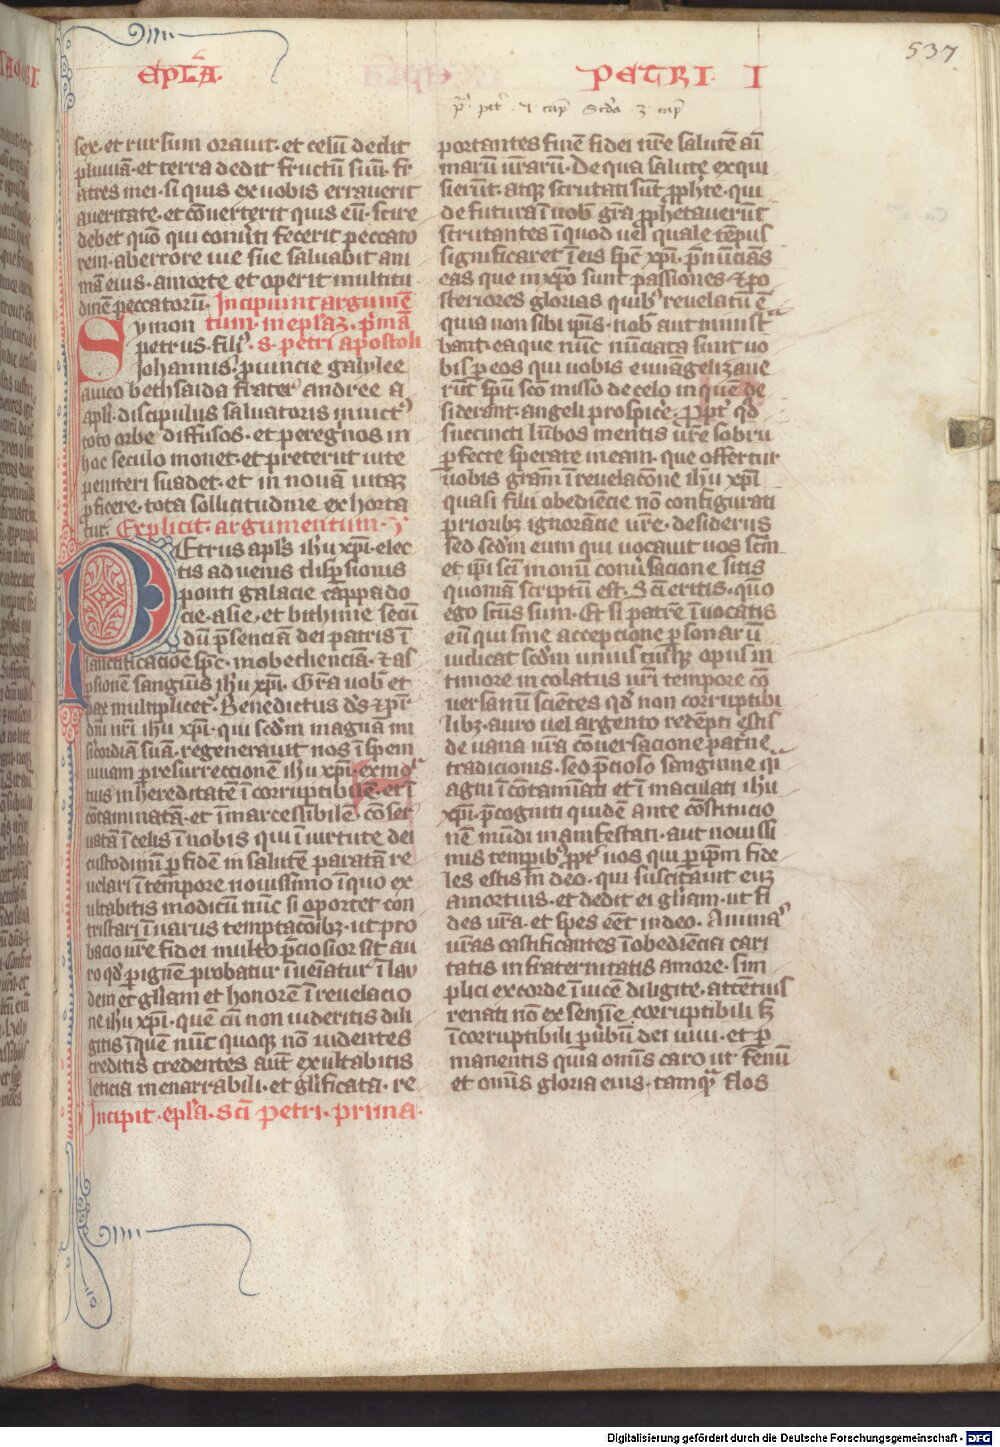 EPL̄A
PETRI I
537
sex et rursum orauit· et celū dedit
pluuiā· et terra dedit fructū suū· fr
atres mei· si quis ex uobis errauerit
aueritate· et cōuerterit quis eū· scire
debet quō qui conuerti fecerit peccato
rem· aberrore uie sue saluabit ani
mā eius· amorte et operit multitu
dinē peccatorū· Incipiunt argumē
Symon tum in ep̄las· p̄ma
petrus· fili⁹· s· petri apostoli
Iohannis· prouincie galylee
auico bethsaida frater andree a
apl̄i· discipulus saluatoris inuict⁹
toto orbe diffusos· et peregrinos in
hoc seculo monet· et preterite uite
peniteri suadet· et in nouā uitaʒ
ꝑficere· tota sollicitudine exhorta
tur· Explicit argumentum·
PEtrus apl̄s ih̄u xp̄i· elec
tis aduenis disꝑsionis
ponti galacie cappado
cie· asie· et bithinie secū
dū p̄senciā dei patris ī
sanctificacioē sp̄c· in obediencia· ⁊ as
ꝑsionē sanguīs ih̄u xp̄i· Grā uob̄ et
pax multiplicet· Benedictus d̄s ⁊ pr̄
dn̄i nr̄i ih̄u xp̄i· qui scd̄m magnā mi
sīcordiā suā· regenerauit nos ī spem
uiuam ꝑ resurreccionē ih̄u xp̄i· ex mor
tuis in hereditatē ī corruptibilē· et ī
cōtaminatā· et īmarcessibilē· cōser
uatā ī celis ī nobis qui ī uirtute dei
custodimī ꝑ fidē in salutē paratā re
uelari ī tempore nouissimo ī quo ex
ultabitis modicū nūc si oportet con
tristari ī uarus temptacōibʒ· ut pro
bacio ur̄e fidei multo p̄ciosior sit au
ro qd̄ ꝑ ignē probatur īueīatur ī lau
dem et gl̄iam et honorē ī reuelacio
ne ih̄u xp̄i· quē cū non uideritis dili
gitis ī quē nūc quoqʒ nō uidentes
creditis credentes aut̄ exultabitis
leticia inenarrabili· et gl̄ificata· re
Incipit· ep̄la· sc̄i petri· prima·
portantes finē fidei ur̄e salutē ai
marū ur̄arū· De qua salute exqui
sierūt· atqʒ scrutati sūt ꝓphē· qui
de futura ī uob̄ gr̄a ꝓphetauerūt
scrutantes ī quod uel quale tēpus
significaret ī eis sp̄c xp̄i· p̄nūcians
eas que in xp̄o sunt passiones· ⁊ po
steriores glorias quibʒ reuelatū ē
quia non sibi ip̄is· uob̄ aut ministra
bant· ea que nūc nūciata sunt uo
bis ꝑ eos qui uobis euuāgelizaue
rūt· sp̄u sc̄o misso de celo in quē de
siderant· angeli prospicē· ꝓpt̄ qd̄
succincti lūbos mentis ur̄e sobrii
ꝑfecte sperate in eam· que offertur
uobis gr̄am ī reuelacōne ih̄u xp̄i
quasi filii obediēcie nō configurati
prioribʒ ignorācie ur̄e· desideriis
sed scd̄m eum qui uocauit uos sc̄m
et ip̄i sc̄i in omī conūsacione sitis
quoniā scriptū est· Sc̄i eritis· qm̄o
ego sc̄us sum· Et si patrē ī uocatis
eū qui sine accepcione ꝑsonarū
iudicat scd̄m uniuscuiusqʒ opus in
timore in colatus ur̄i tempore cō
uersamī sciētes qd̄ non corruptibi
libʒ· auro uel argento redēpti estis
de uana ur̄a cōuersacione pat̄ne
tradicionis· sed p̄cioso sanguine q̄i
agni ī cōtamiati et ī maculati ih̄u
xp̄i· p̄cogniti quidē ante cōstitucio
nē mūdi manifestati· aut nouissi
mis temporibʒ ꝓpt̄ uos qui ꝑ ip̄m fide
les estis in deo· qui suscitauit euʒ
amortuis· et dedit ei gl̄iam· ut fi
des ur̄a· et spes eēt in deo· Animas
ur̄as castificantes ī obediēcia cari
tatis in fraternitatis amore· sim
plici ex corde ī uicē diligite· attētius
renati nō ex semīe corruptibili sʒ
īcorruptibili ꝑ uerbū dei uiui· et ꝑ
manentis quia omīs caro ut fenū
et omīs gloria eius· tamqȝ flos
Digitalisierung gefördert durch die Deutsche Forschungsgemeinschaft - DFG